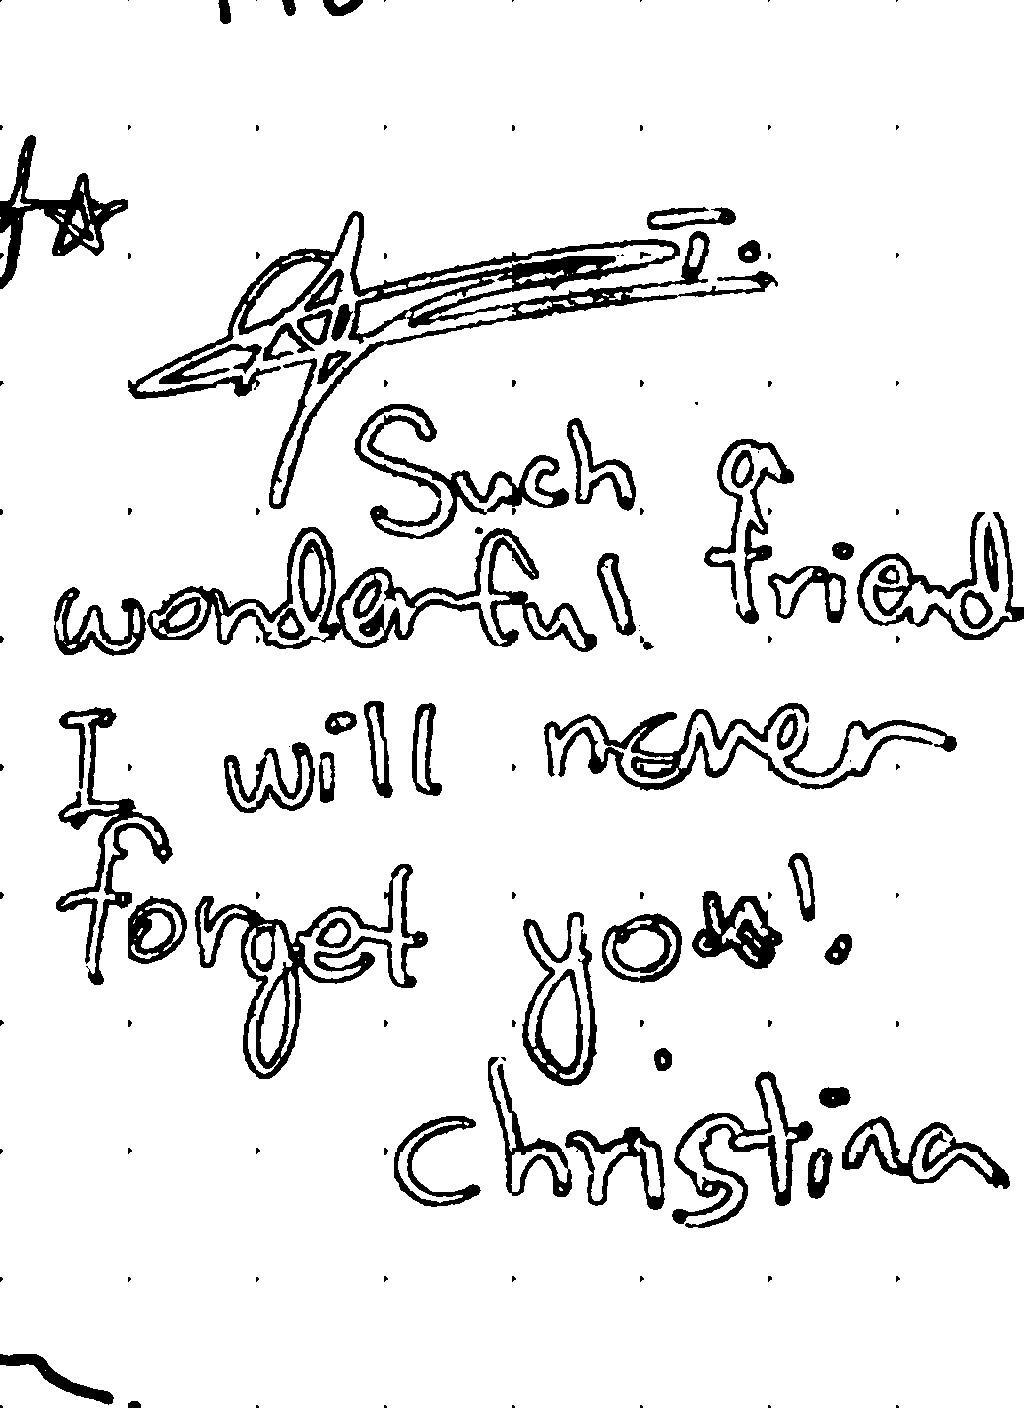 Such a
wonderful friend
I will never
forget you!
Christina